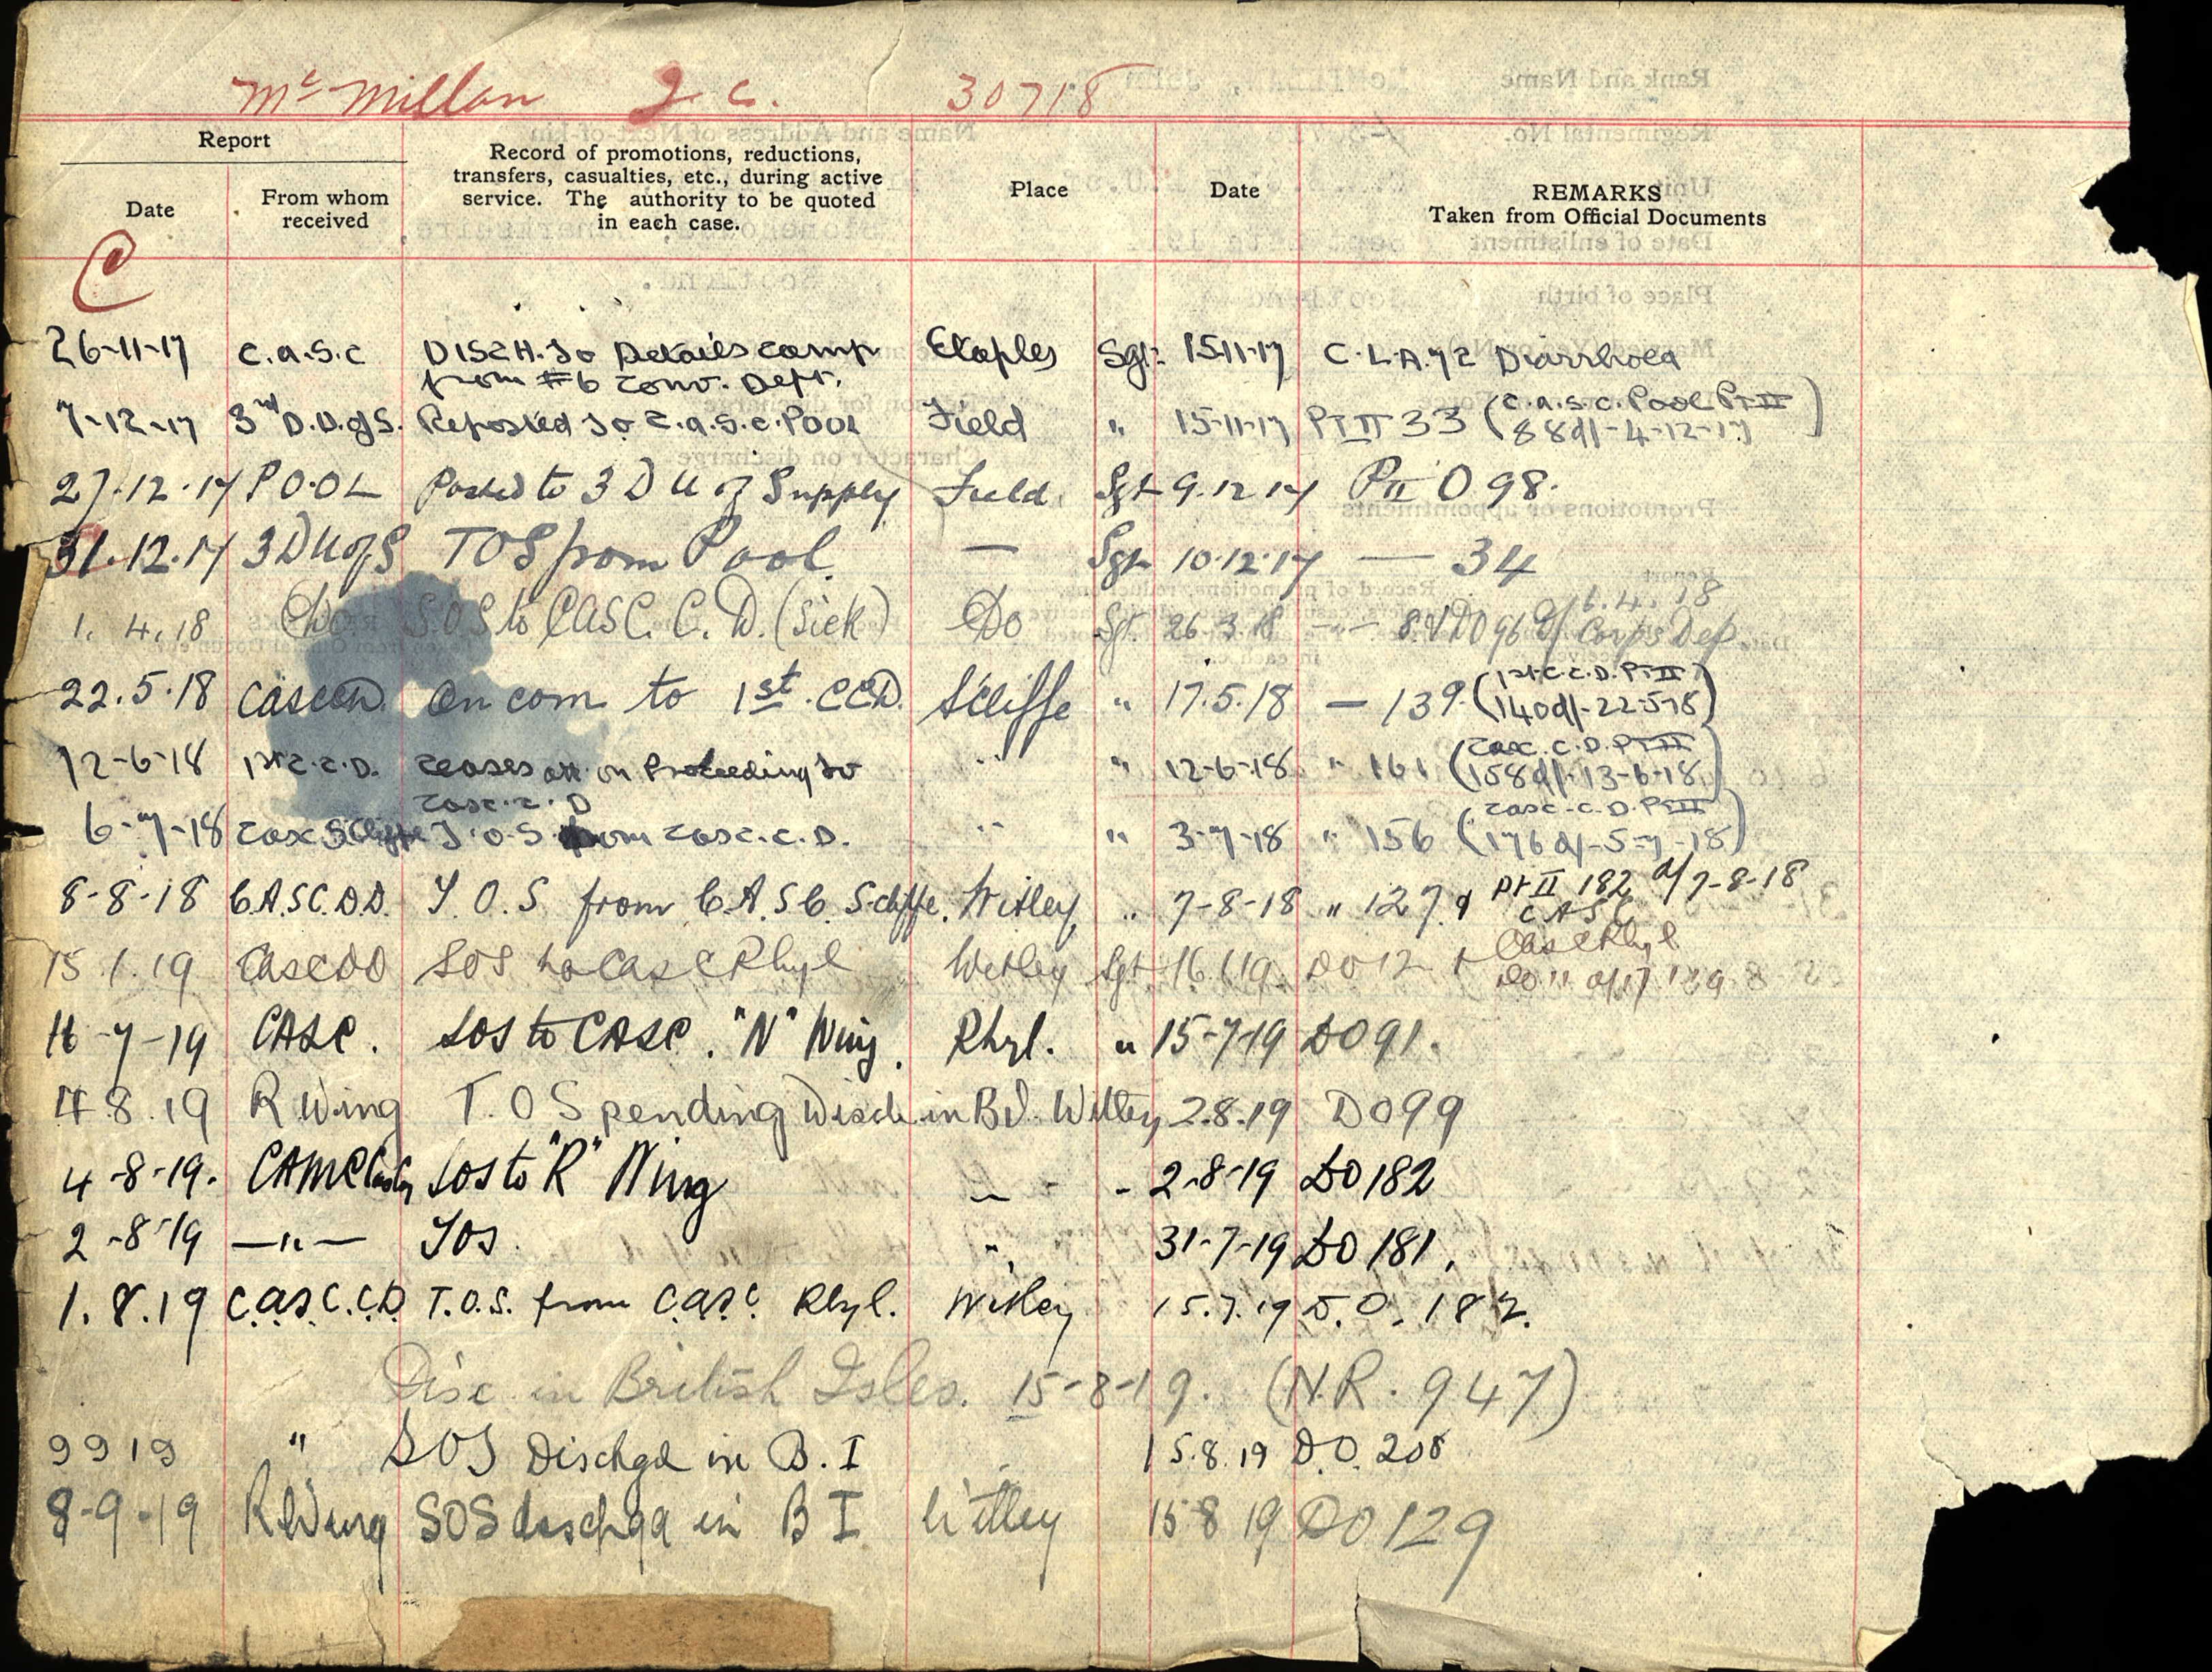 McMillan J. C. 30718
Report
Date
From whom received
Record of promotions, reductions, transfers, casualties, etc., during active service. The authority to be quoted in each case.
Place
Date
REMARKS
Taken from Official Documents
C
26-11-17 C.A.S.C DISCH. To Details Camp Etaples Sgt. 15-11-17 C.L.A.72 Diarrhoea
from #6 Conv. Dept.
7-12-17 3rd D.U.of S. Reposted to C.A.S.C. Pool Field " 15-11-17 Pt II 33 (C.A.S.C. Pool Pt II
88 d/- 4-12-17)
27.12.17 POOL Posted to 3 D U of Supply Field Sgt 9.12.17 Pt II O 98.
31.12.17 3 D U of S TOS from Pool — Sgt 10.12.17 — 34
1.4.18 Do S.O.S to CASC. C.D. (Sick) Do Sgt 26 3 18 — 8 & DO 96 d/ 6.4.18
Corps Dep.
22.5.18 CASCCD On com to 1st. CCD. S'Cliffe " 17.5.18 — 139. (1st C.C.D. Pt II
140 d/- 22-5-18)
12-6-18 1st C.C.D. Ceases att. on Proceeding to " " 12-6-18 " 161 (Casc. C.D. Pt II
158 d/- 13-6-18)
Casc.C.D
6-7-18 Casc S'Cliffe T.O.S from Casc.C.D. " " 3-7-18 " 156 (Casc.C.D. Pt II
176 d/- 5-7-18)
8-8-18 C.A.S.C.D.D. T.O.S from C.A.S.C. S'cliffe. Witley " 7-8-18 " 127 & Pt II 182 d/ 7-8-18
CASC
15.1.19 CASCDD SOS to CASC Rhyl Witley Sgt 16.1.19 DO 12 + CASC Rhyl
DO 11 d/
-7-19 CASC. SOS to CASC. "N" Wing. Rhyl. " 15-7-19 DO 91.
4 8.19 R Wing T.O S pending Disch. in B.I. Witley 2.8.19 DO 99
4-8-19. SOS to "R" Wing 2-8-19 DO 182
2-8-19 —"— TOS " 31-7-19 DO 181.
1.8.19 C.A.S.C.C.D T.O.S. from C.A.S.C. Rhyl. Witley 15.7.19 D.O. 182.
Disc. in British Isles. 15-8-19. (N.R. 947)
9 9 19 " SOS Dischgd in B.I 15.8.19 D.O. 208
8-9-19 R Wing SOS dischgd in B I Witley 15 8 19 DO 129